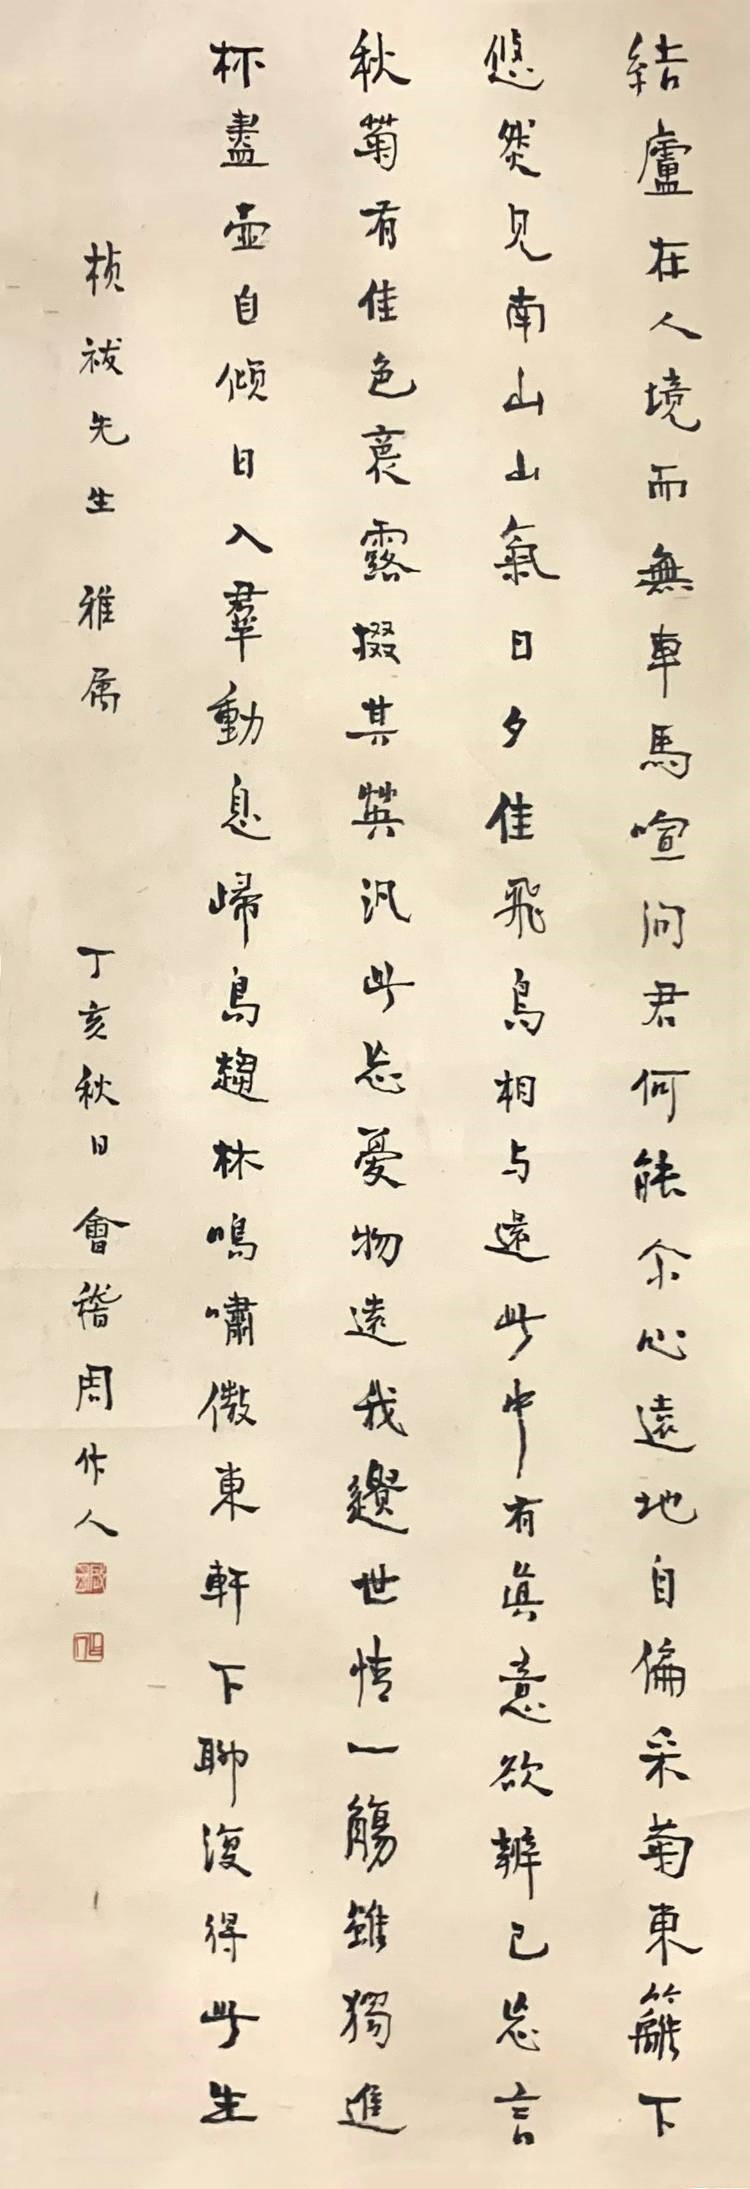 結廬在人境而無車馬喧問君何能尒心遠地自偏采菊東籬下
悠然見南山山氣日夕佳飛鳥相与還此中有眞意欲辨已忘言
秋菊有佳色裛露掇其英汎此忘憂物遠我遺世情一觴雖獨進
杯盡壺自傾日入羣動息歸鳥趨林鳴嘯傲東軒下聊復得此生
桢祓先生 雅属 丁亥秋日 會稽周作人